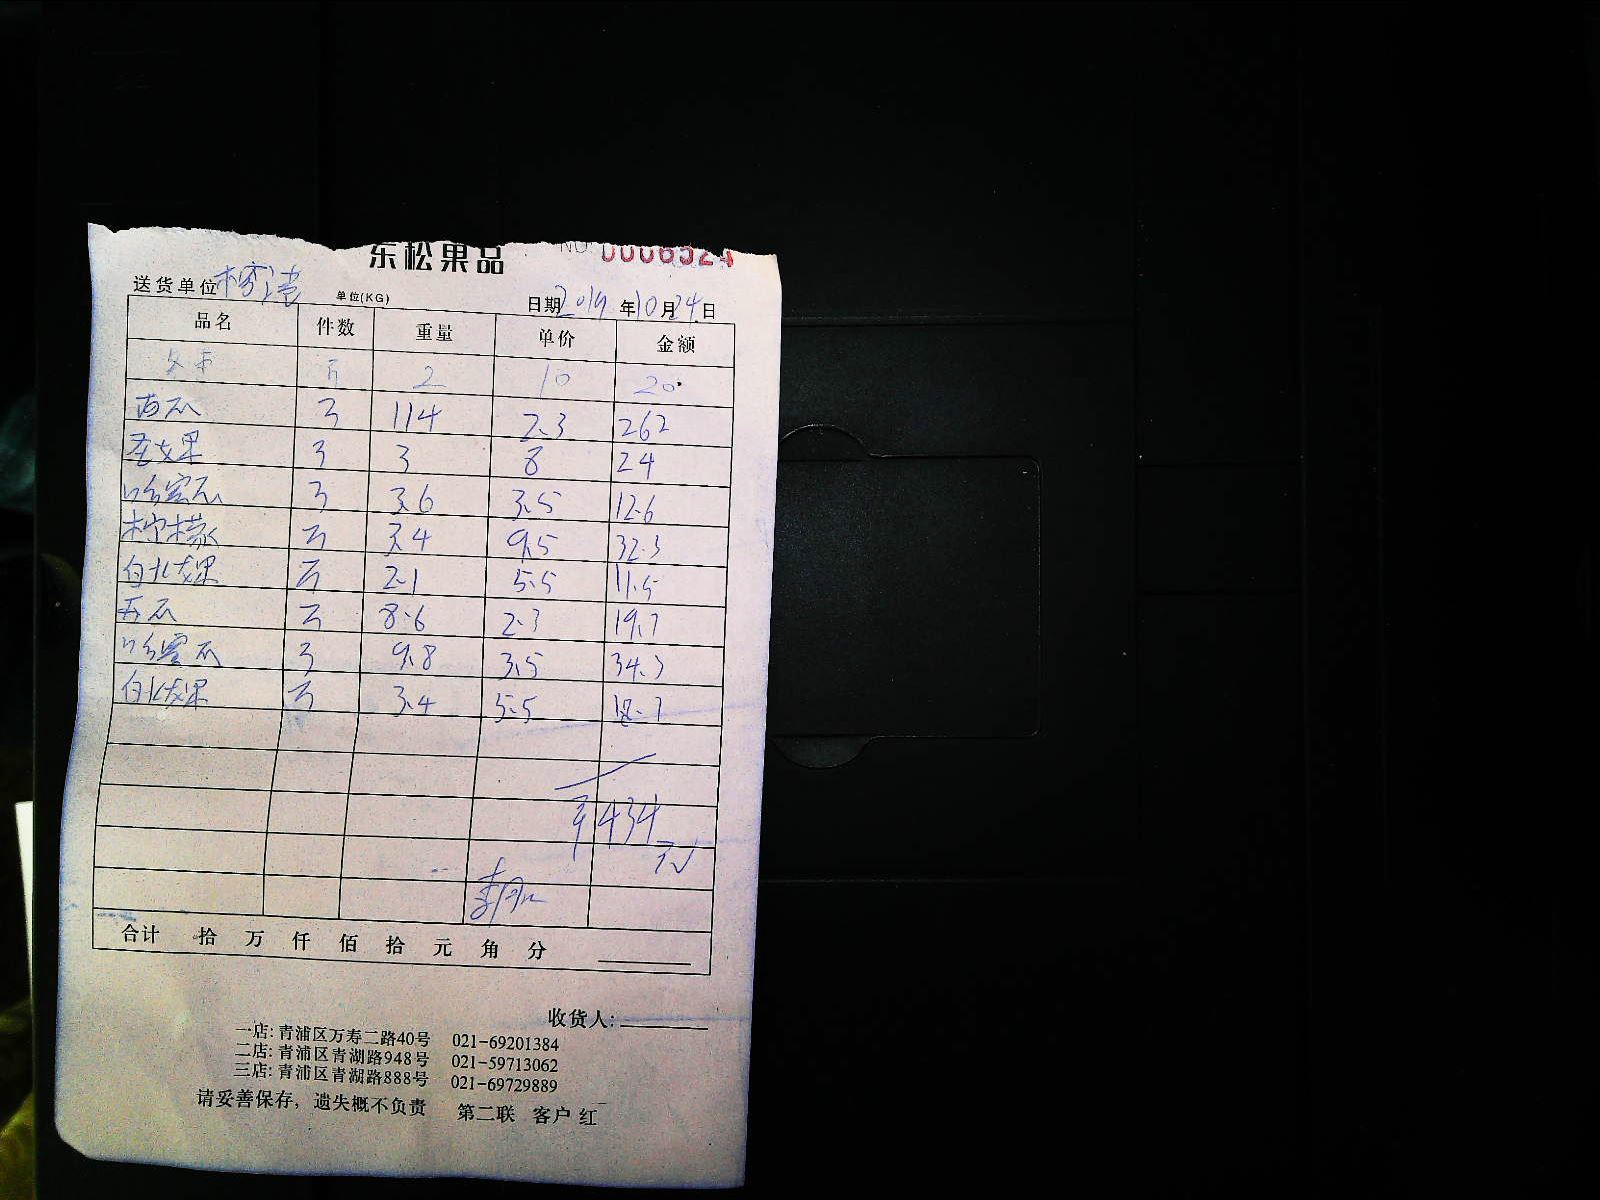 东松果品 NO 0006524
送货单位 单位(KG) 日期2019年10月24日
品名 件数 重量 单价 金额
2 10 20
西瓜 114 2.3 262
圣女果 3 8 24
哈密瓜 3.6 3.5 12.6
柠檬 3.4 9.5 32.3
白火龙果 2.1 5.5 11.5
西瓜 8.6 2.3 19.7
哈密瓜 9.8 3.5 34.3
白火龙果 3.4 5.5 18.7
¥434
元
合计 拾 万 仟 佰 拾 元 角 分
收货人:
一店: 青浦区万寿二路40号 021-69201384
二店: 青浦区青湖路948号 021-59713062
三店: 青浦区青湖路888号 021-69729889
请妥善保存，遗失概不负责 第二联 客户 红